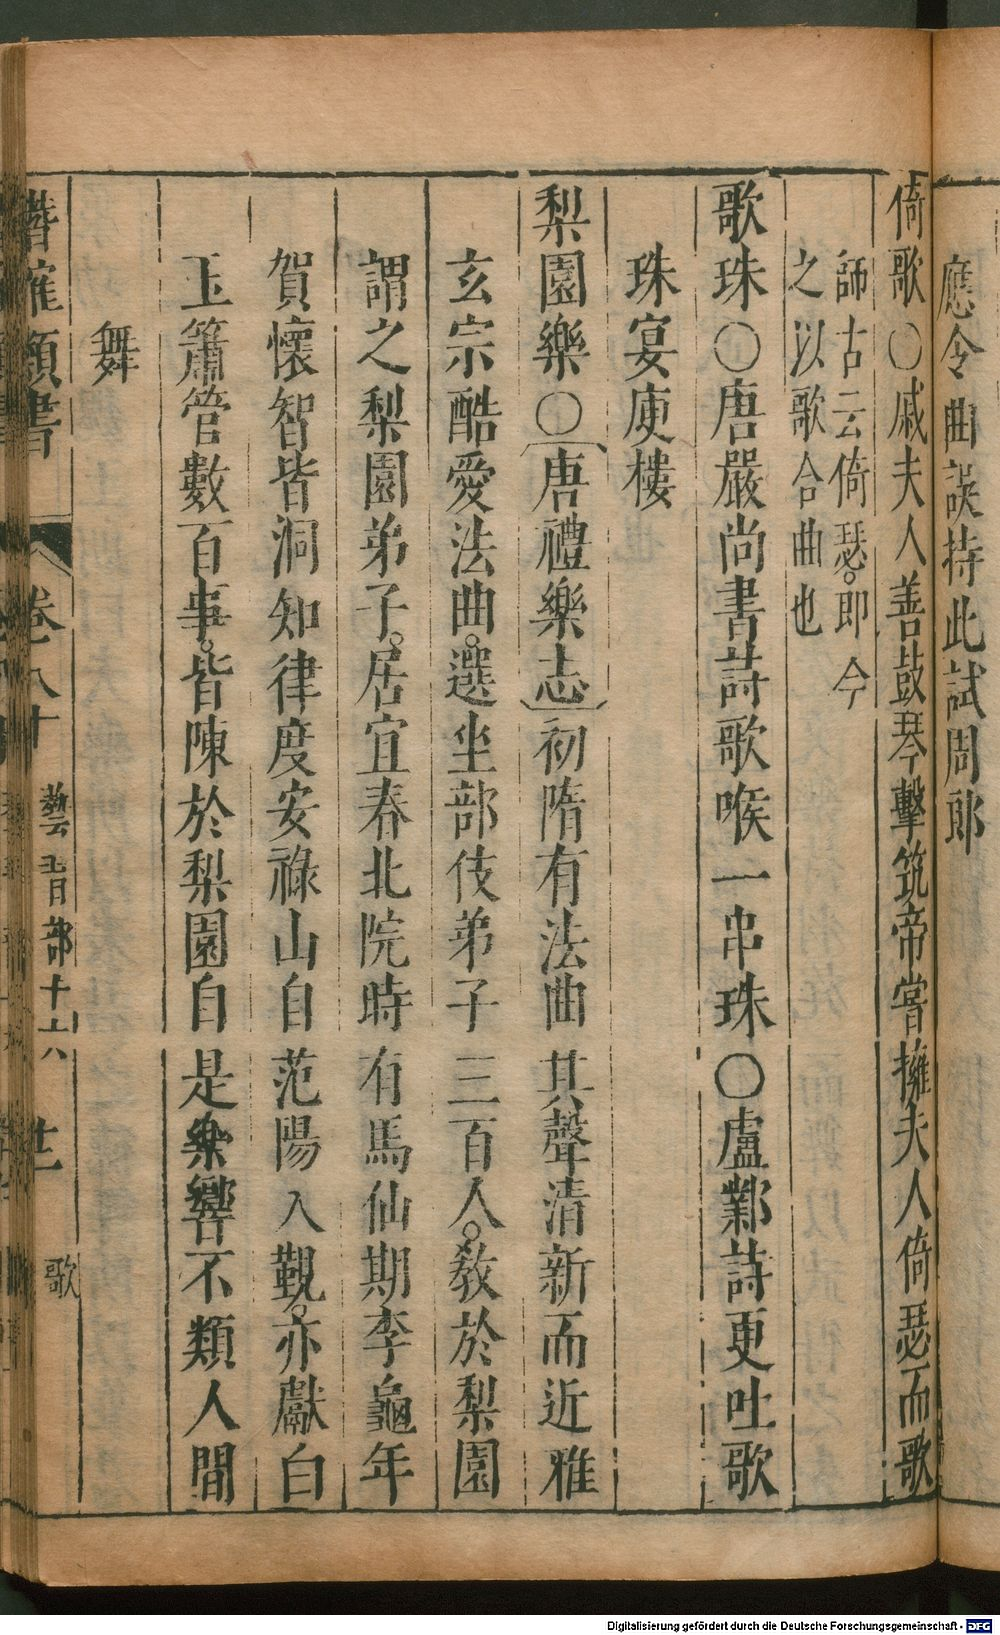 應令曲誤持此試周郎
倚歌〇戚夫人善鼓琴擊筑帝嘗擁夫人倚瑟而歌
師古云倚瑟。即今
之以歌合曲也
歌珠〇唐嚴尚書詩歌喉一串珠〇盧鄴詩更吐歌
珠宴庾樓
梨園樂〇唐禮樂志初隋有法曲其聲清新而近雅
玄宗酷愛法曲。選坐部伎弟子三百人。教於梨園
謂之梨園弟子。居宜春北院時有馬仙期李龜年
賀懷智皆洞知律度安祿山自范陽入覲。亦獻白
玉簫管數百事。皆陳於梨園自是樂響不類人間
舞
潛確類書 卷八十 藝習部十六 廿一 歌
Digitalisierung gefördert durch die Deutsche Forschungsgemeinschaft - DFG